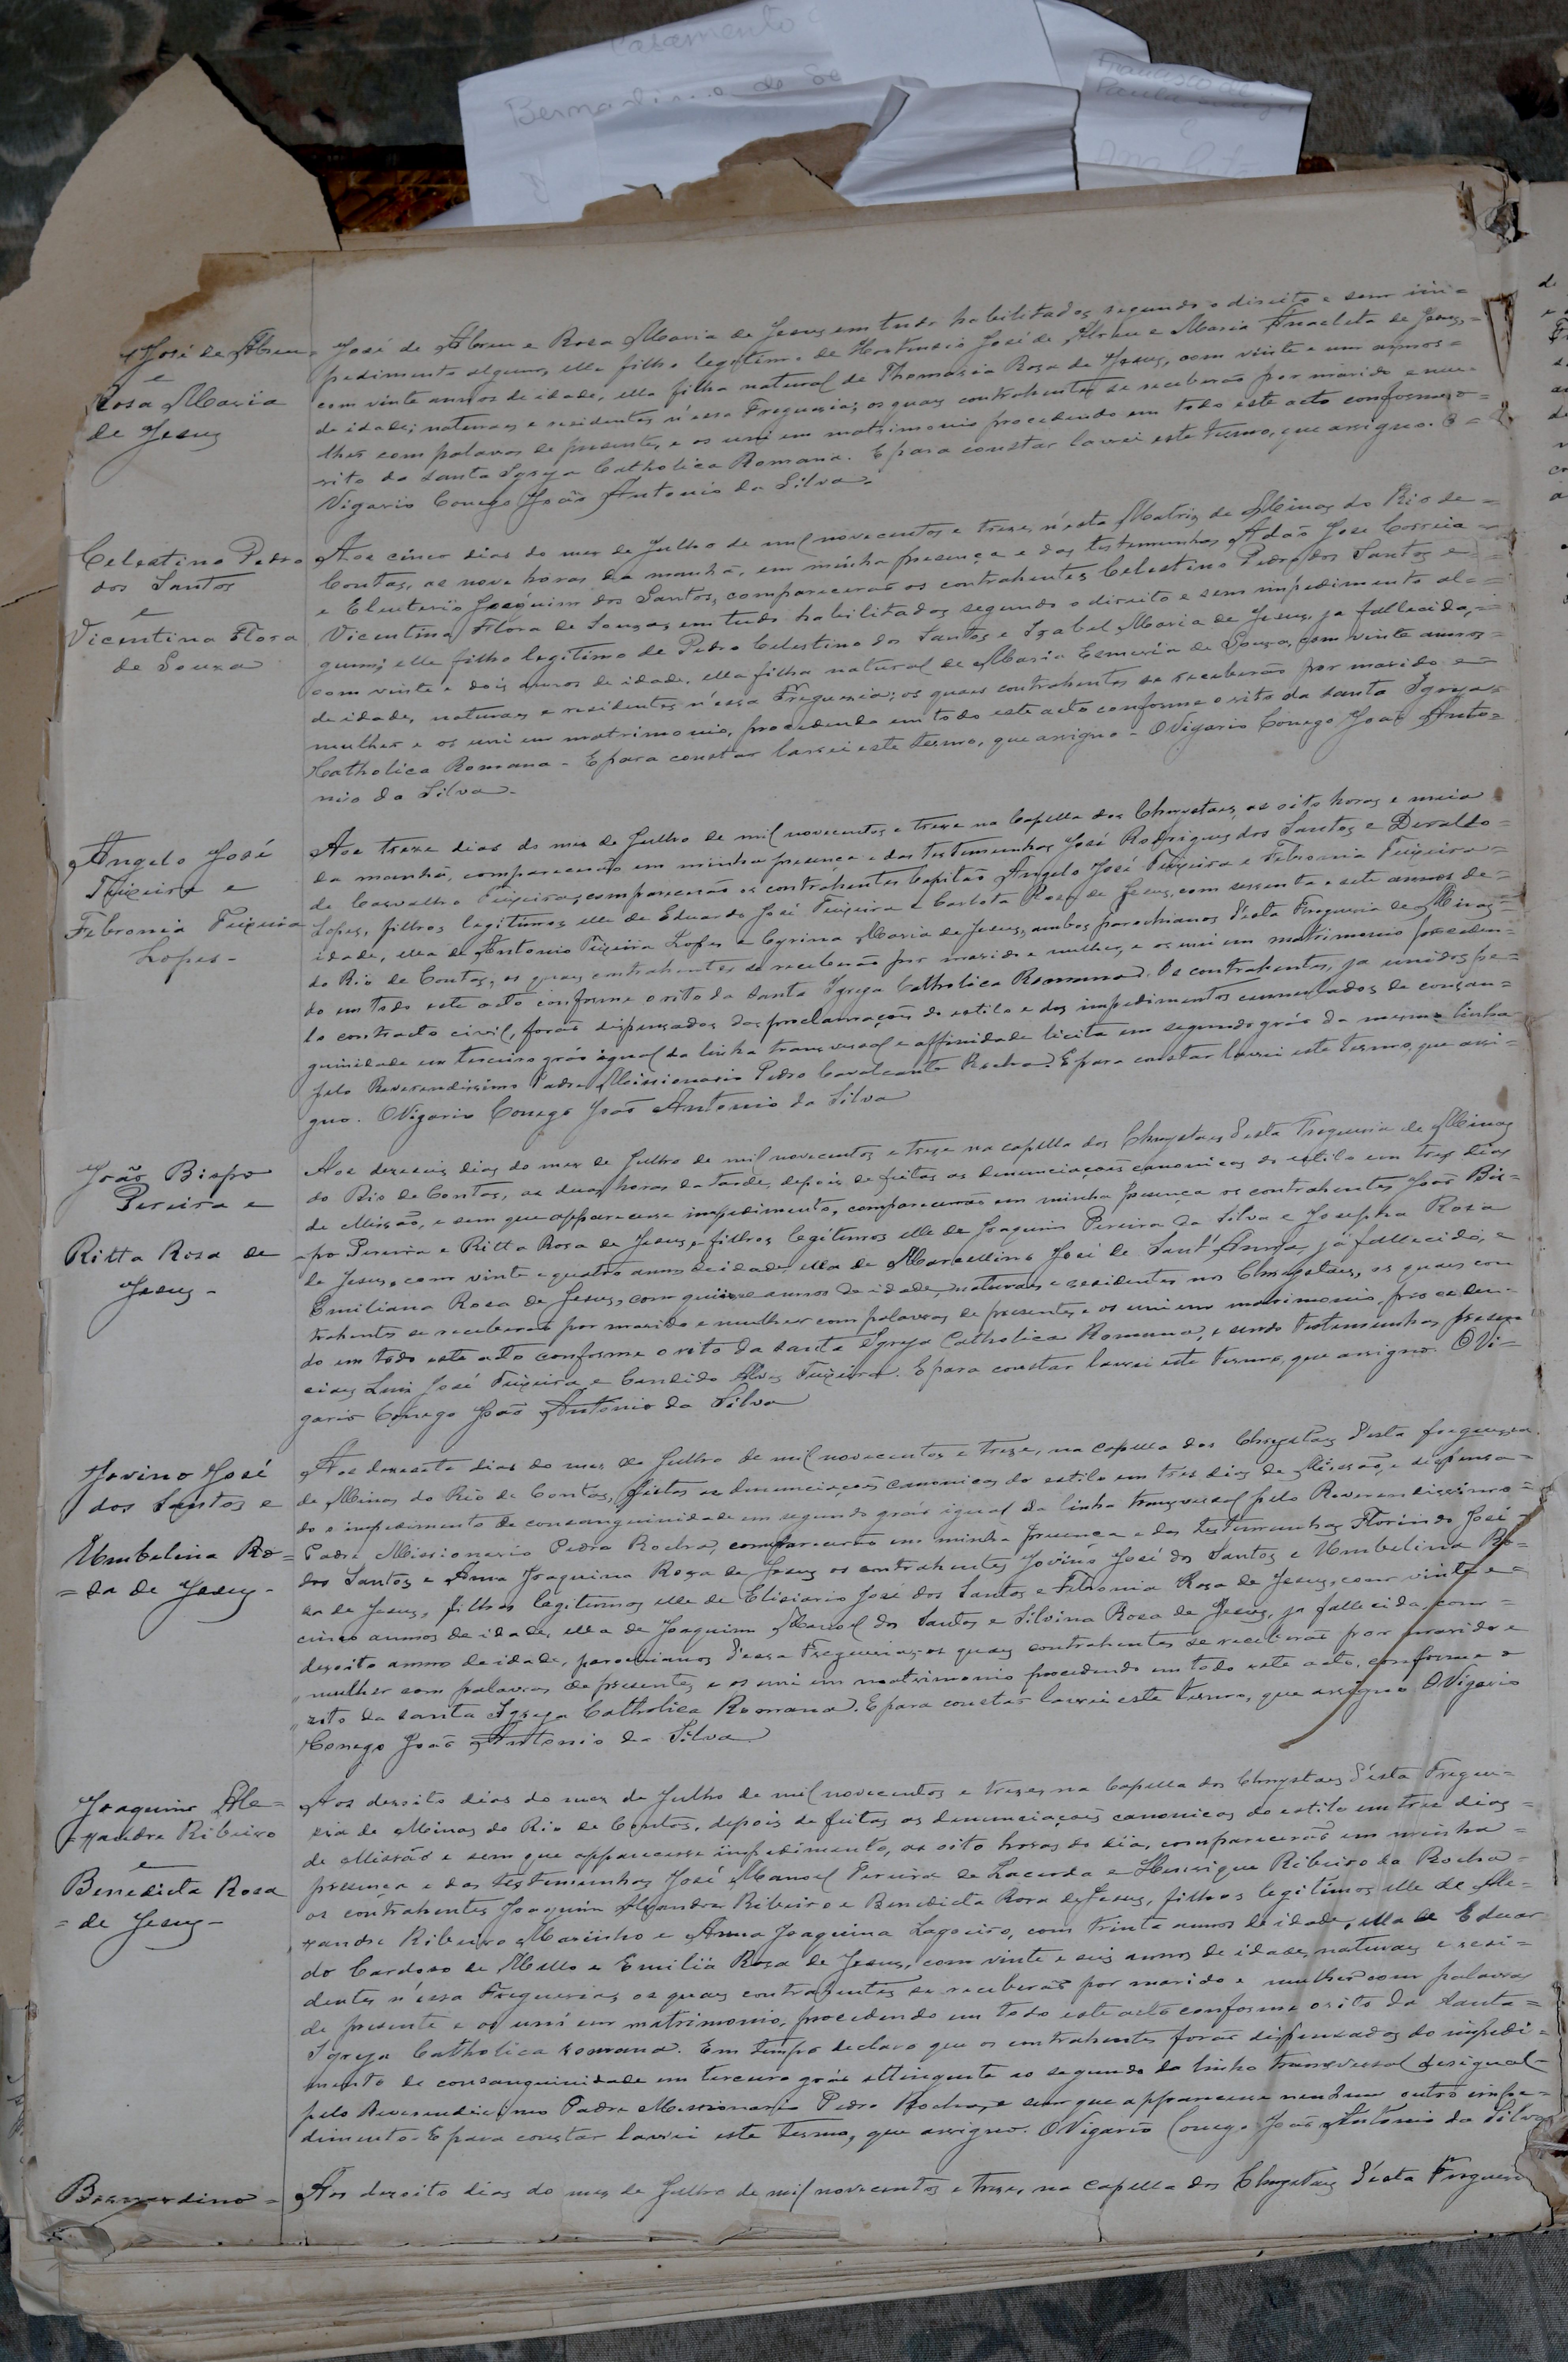 Casamento
Bernardino do
Francisco de
Paula
e
José de Abreu
e
Rosa Maria
de Jesus
José de Abreu e Rosa Maria de Jesus em tudo habilitados segundo o direito e sem im=
pedimento algum, elle filho legitimo de Hortencio José de Abreu e Maria Anacleta de Jesus,=
com vinte annos de idade, ella filha natural de Thomasia Rosa de Jesus, com vinte e um annos=
de idade; naturaes e residentes n'essa Freguesia; os quaes contrahentes se receberão por marido e mu=
lher com palavras de presente, e os uni em matrimonio procedendo em todo este acto conforme o=
rito da Santa Igreja Catholica Romana. E para constar lavrei este termo, que assigno. O=
Vigario Conego João Antonio da Silva.
Celestino Pedro
dos Santos
e
Vicentina Flora
de Souza
Aos cinco dias do mez de Julho de mil novecentos e treze, n'esta Matriz de Minas do Rio de=
Contas, as nove horas da manhã, em minha presença e das testemunhas Adão José Correia
e Eleuterio Joaquim dos Santos, comparecerão os contrahentes Celestino Pedro dos Santos e=
Vicentina Flora de Souza, em tudo habilitados segundo o direito e sem impedimento al=
gum; elle filho legitimo de Pedro Celestino dos Santos e Izabel Maria de Jesus, ja fallecida,=
com vinte e dois annos de idade, ella filha natural de Maria Esmeria de Souza, com vinte annos=
de idade, naturaes e residentes n'essa Freguezia; os quaes contrahentes se receberão por marido e=
mulher e os uni em matrimonio, procedendo em todo este acto conforme o rito da santa Igreja
Catholica Romana - E para constar lavrei este termo, que assigno - O Vigario Conego João Anto=
nio da Silva.
Angelo José
Teixeira e
Febronia Teixeira
Lopes -
Aos treze dias do mez de Julho de mil novecentos e treze na Capella dos Chrystaes, as oito horas e meia
da manhã, comparecerão em minha presença e das testemunhas José Rodrigues dos Santos e Devaldo=
de Carvalho Teixeira, comparecerão os contrahentes Capitão Angelo José Teixeira e Febronia Teixeira=
Lopes, filhos legitimos elle de Eduardo José Teixeira e Carlota Rosa de Jesus, com sessenta e sete annos de=
idade, ella de Antonio Teixeira Lopes e Cyrina Maria de Jesus, ambos parochianos d'esta Freguesia de Minas=
do Rio de Contas, os quaes contrahentes se receberão por marido e mulher, e os uni em matrimonio proceden=
do em todo este acto conforme o rito da Santa Igreja Catholica Romana. Os contrahentes, ja unidos pe=
lo contracto civil, forão dispensados das proclamações do estilo e dos impedimentos cumulados de consan=
guinidade em terceiro gráo igual da linha transversal e affinidade licita em segundo gráo da mesma linha
pelo Reverendissimo Padre Missionario Pedro Cavalcante Rocha. E para constar lavrei este termo, que assi=
gno. O Vigario Conego João Antonio da Silva
João Bispo
Pereira e
Ritta Rosa de
Jesus -
Aos dezeseis dias do mez de Julho de mil novecentos e treze na capella dos Chrystaes d'esta Freguesia de Minas
do Rio de Contas, as duas horas da tarde, depois de feitas as denunciações canonicas do estilo em tres dias
de Missão, e sem que apparecesse impedimento, comparecerão em minha presença os contrahentes João Bis=
po Pereira e Ritta Rosa de Jesus, filhos legitimos elle de Joaquim Pereira da Silva e Josepha Rosa
de Jesus, com vinte e quatro annos de idade, ella de Marcellino José de Sant'Anna, já fallecido, e
Emiliana Rosa de Jesus, com quinze annos de idade, naturaes e residentes nos Chrystaes, os quaes con
trahentes se receberão por marido e mulher com palavras de presente, e os uni em matrimonio, proceden=
do em todo este acto conforme o rito da santa Igreja Catholica Romana, e sendo testemunhas presen
ciaes Luiz José Teixeira e Candido Alves Teixeira. E para constar lavrei este termo, que assigno. O Vi=
gario Conego João Antonio da Silva
Jovino José
dos Santos e
Umbelina Ro=
=sa de Jesus -
Aos dezesete dias do mez de Julho de mil novecentos e treze, na capella dos Chrystaes d'esta freguesia
de Minas do Rio de Contas, feitas as denunciações canonicas do estilo em tres dias de Missão, e dispensa=
do o impedimento de consanguinidade em segundo gráo igual da linha transversal pelo Reverendissimo=
Padre Missionario Pedro Rocha, comparecerão em minha presença e das testemunhas Florindo José=
dos Santos e Anna Joaquina Rosa de Jesus os contrahentes Jovino José dos Santos e Umbelina Ro=
sa de Jesus, filhos legitimos elle de Elisiario José dos Santos e Febronia Rosa de Jesus, com vinte e=
cinco annos de idade, ella de Joaquim Manoel dos Santos e Silvina Rosa de Jesus, ja fallecida, com=
desoito annos de idade, parochianos d'essa Freguesia; os quaes contrahentes se receberão por marido e
mulher com palavras de presente, e os uni em matrimonio procedendo em todo este acto, conforme o
rito da santa Igreja Catholica Romana. E para constar lavrei este termo, que assigno O Vigario
Conego João Antonio da Silva
Joaquim Ale=
=xandre Ribeiro
e
Benedicta Rosa
=de Jesus -
Aos desoito dias do mez de Julho de mil novecentos e treze, na Capella dos Chrystaes d'esta Fregue=
sia de Minas do Rio de Contas, depois de feitas as denunciações canonicas do estilo em tres dias=
de Missão e sem que apparecesse impedimento, as oito horas do dia, comparecerão em minha=
presença e das testemunhas José Manoel Pereira de Lacerda e Henrique Ribeiro da Rocha=
os contrahentes Joaquim Alexandre Ribeiro e Benedicta Rosa de Jesus, filhos legitimos elle de Ale=
xandre Ribeiro Marinho e Anna Joaquina Lagoeiro, com trinta annos de idade, ella de Eduar
do Cardoso de Mello e Emilia Rosa de Jesus, com vinte e seis annos de idade, naturaes e resi=
dentes n'essa Freguesia, os quaes contrahentes se receberão por marido e mulher com palavras
de presente e os uni em matrimonio, procedendo em todo este acto conforme o rito da Santa=
Igreja Catholica romana. Em tempo declaro que os contrahentes forão dispensados do impedi=
mento de consanguinidade em terceiro gráo attingente ao segundo da linha transversal desigual
pelo Reverendissimo Padre Missionario Pedro Rocha, e sem que apparecesse nenhum outro impe=
dimento. E para constar lavrei este termo, que assigno. O Vigario Conego João Antonio da Silva
Bernardino =
Aos desoito dias do mez de Julho de mil novecentos e treze, na capella dos Chrystaes d'esta Freguesi